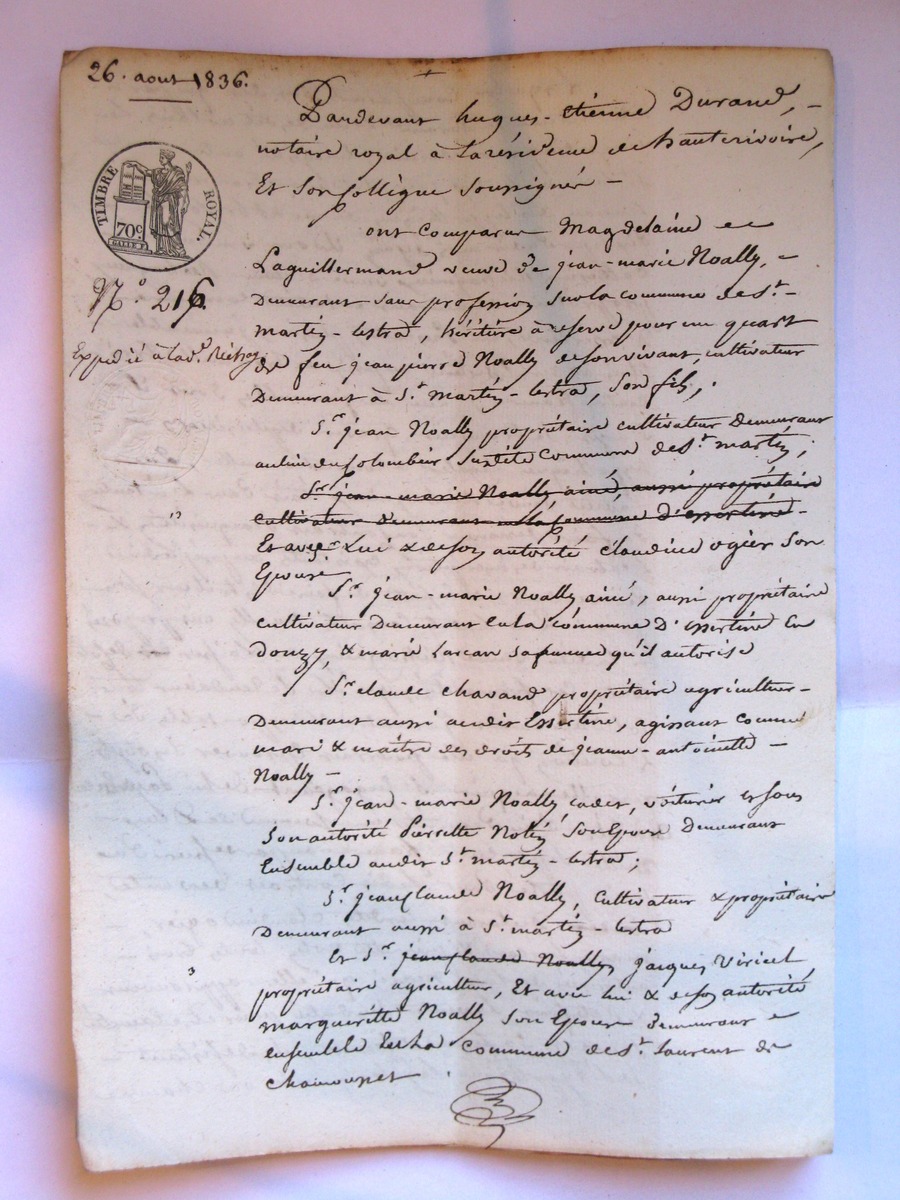 26. aout 1836.
Pardevant hugues-étienne Durand,
notaire royal à la résidence de hauterivoire,
Et Son Collègue Soussignés
TIMBRE ROYAL.
70c.
N.o 216.
ont Comparu Magdelaine
Laguillermand veuve de jean-marie Noally,
Demeurant sans profession sur la commune de St.
martin-lestra, héritière à réserve pour un quart
Expédié à
de feu jean pierre Noally de son vivant cultivateur
Demeurant à St. martin-lestra, Son fils;
Sr. jean Noally propriétaire cultivateur demeurant
Colombier Susdite commune de St. martin;
Sr. jean-marie Noally ainé, aussi propriétaire
cultivateur demeurant en la commune d'essertine
Et avec lui & de son autorité claudine ogier Son
Epouse
Sr. jean-marie Noally ainé, aussi propriétaire
cultivateur Demeurant en la commune D'essertine En
Donzy, & marie Larcan sa femme qu'il autorise
Sr. claude Chavand propriétaire agriculteur
Demeurant aussi audit Essertine, agissant comme
mari & maitre des droits de jeanne-antoinette
Noally
Sr. jean-marie Noally cadet, voiturier et sous
Son autorité Pierrette Son Epouse Demeurant
Ensemble audit St. martin-lestra;
Sr. jean claude Noally, Cultivateur & propriétaire
Demeurant aussi à St. martin-lestra
Et Sr. jean claude Noally jacques Viricel
propriétaire agriculteur, Et avec lui & de son autorité
margueritte Noally Son Epouse demeurant
ensemble En la Commune de St. Laurent de
Chamousset